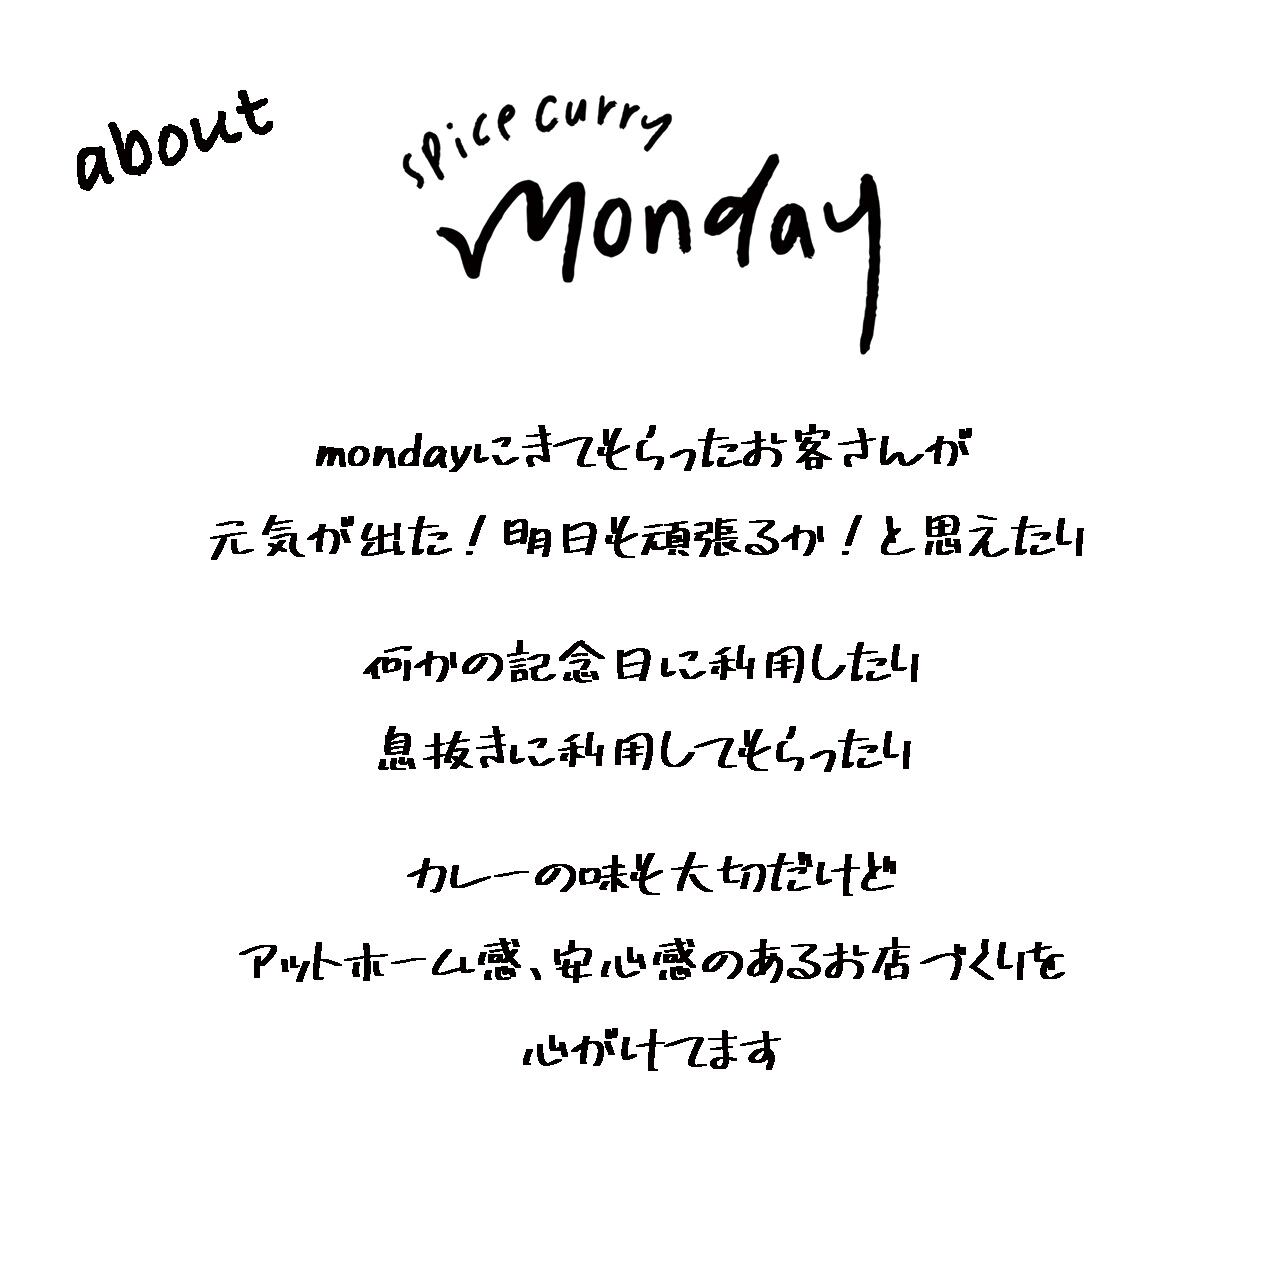 about
spice curry
monday
mondayにきてもらったお客さんが
元気が出た！明日も頑張るか！と思えたり
何かの記念日に利用したり
息抜きに利用してもらったり
カレーの味も大切だけど
アットホーム感、安心感のあるお店づくりを
心がけてます